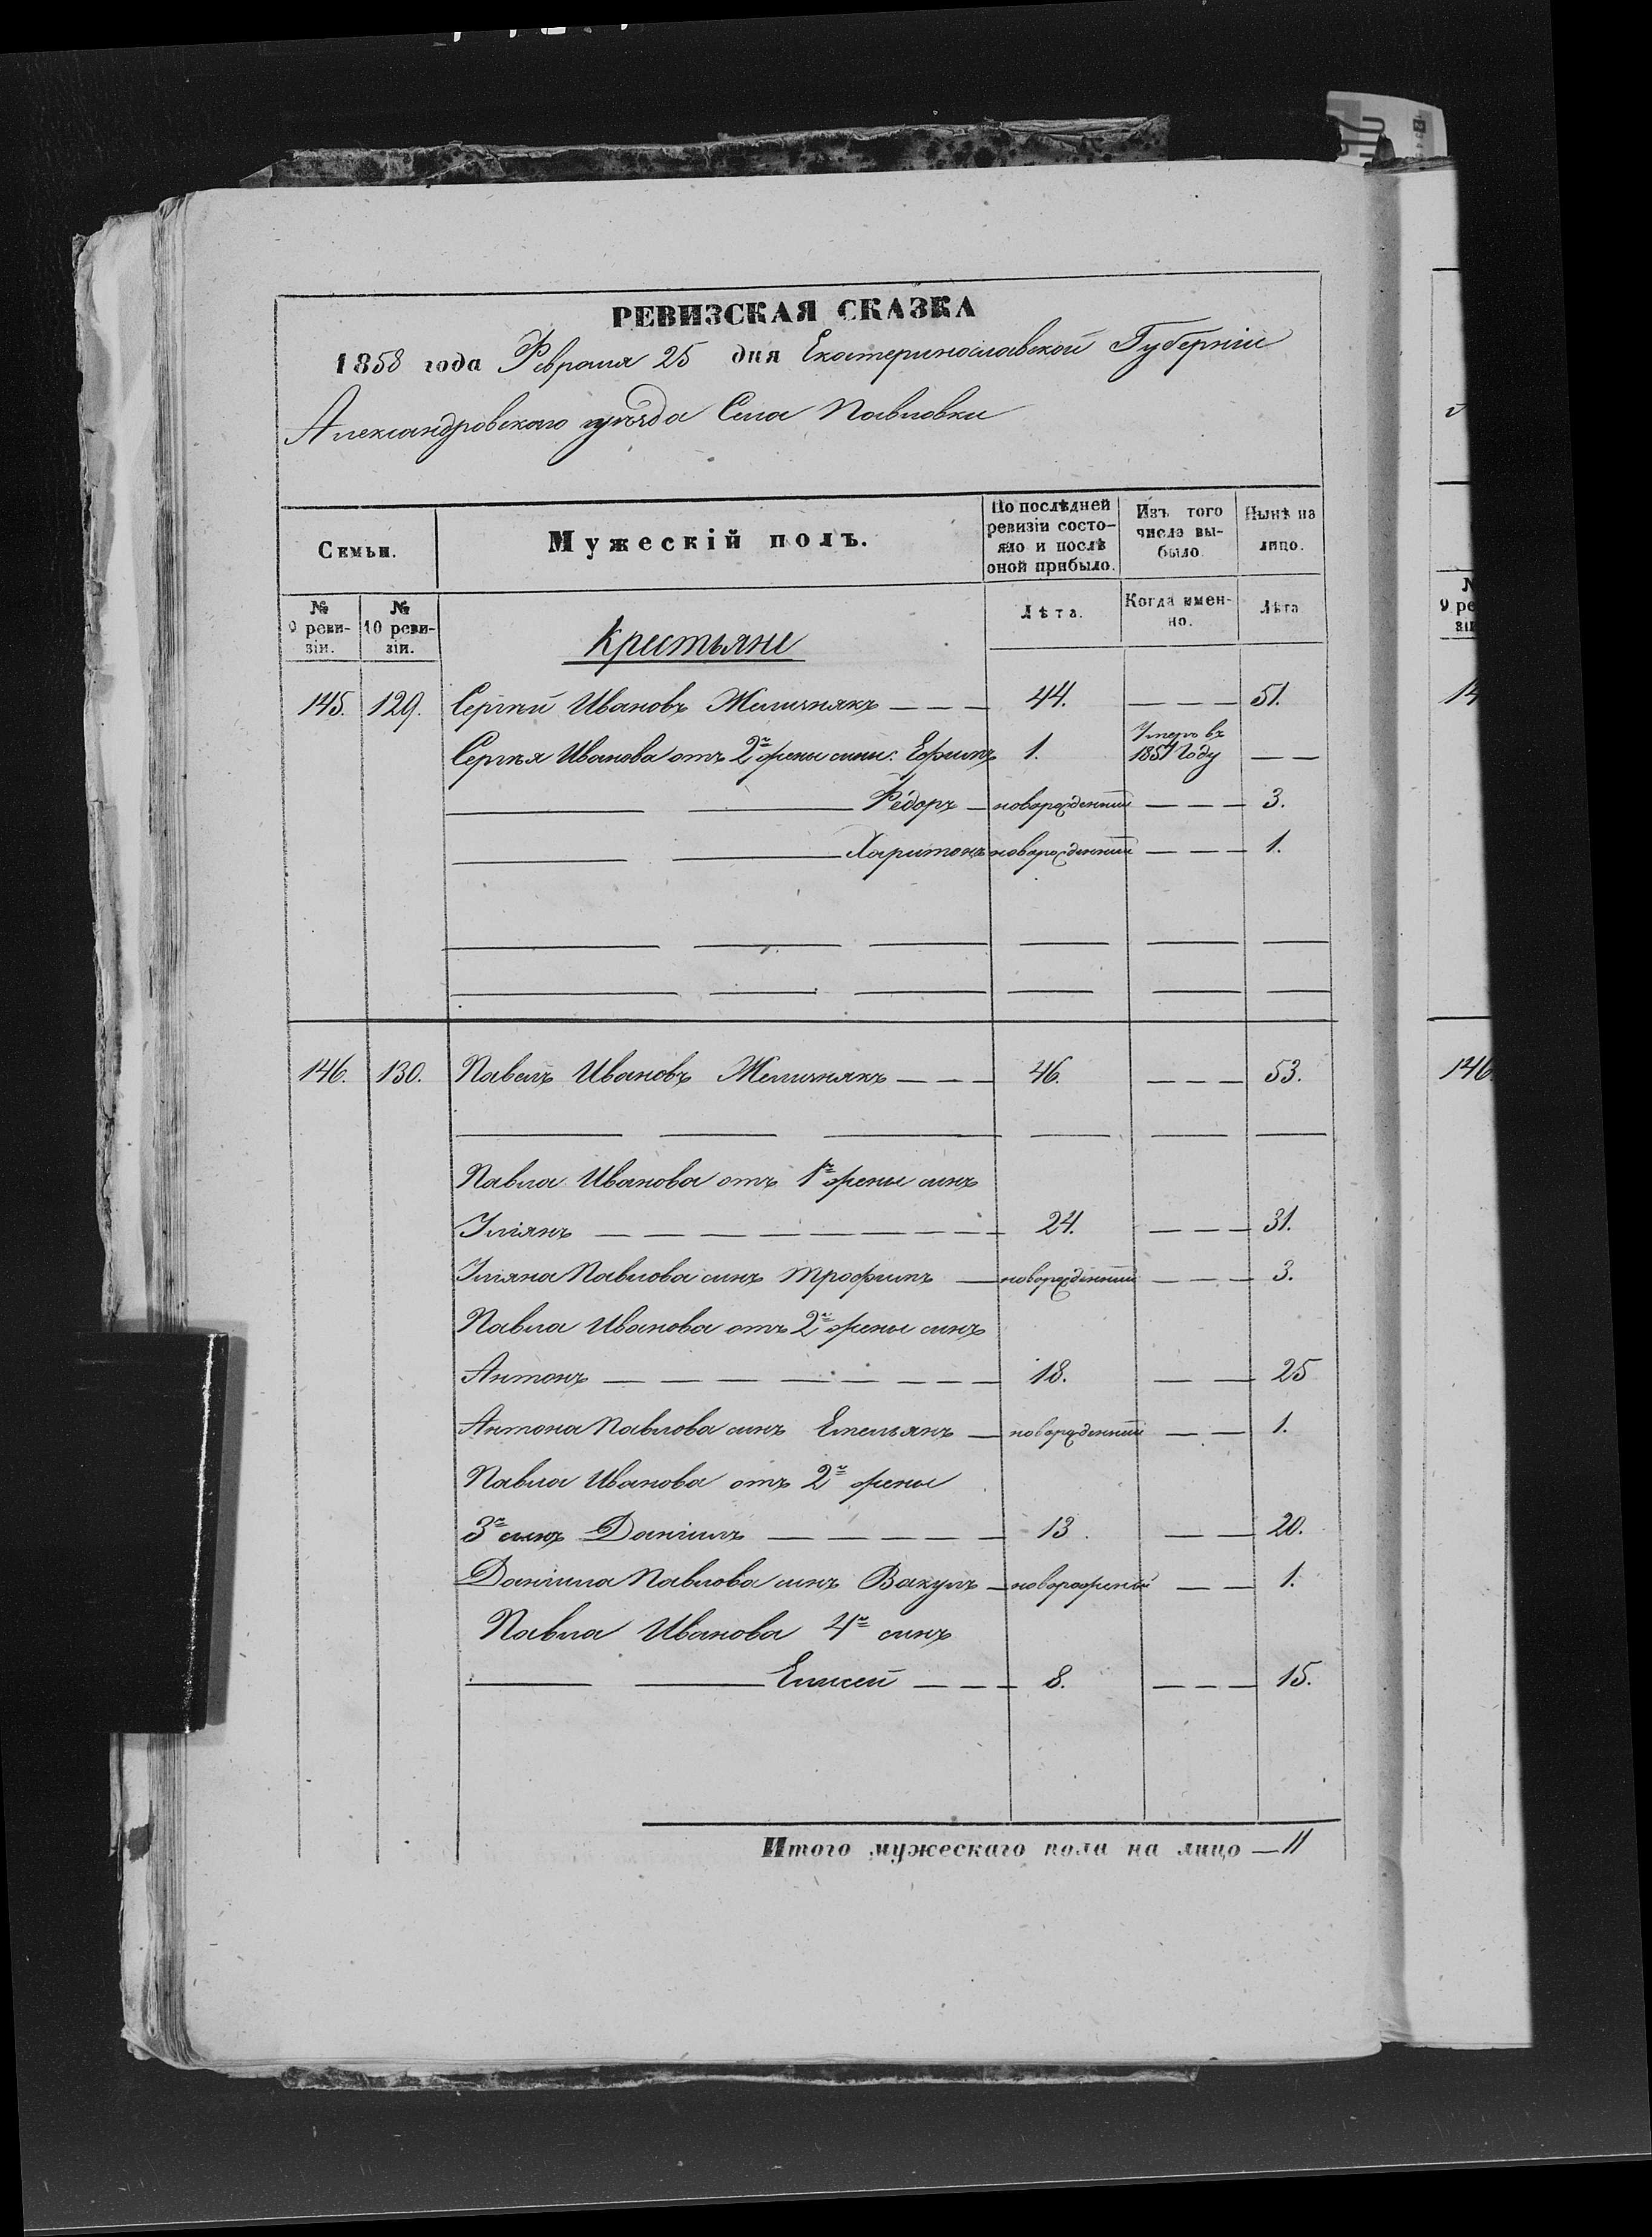 РЕВИЗСКАЯ СКАЗКА
1858 года Февраля 25 дня Екатеринославской Губерніи
Александровскаго уѣзда Села Павловки
Семьи.
Мужескій полъ.
По послѣдней ревизіи состояло и послѣ оной прибыло.
Изъ того числа выбыло
Нынѣ на лицо.
№ 9 ревизіи.
№ 10 ревизіи.
Крестьяне
Лѣта.
Когда именно.
Лѣта
145. 129. Сергѣй Ивановъ Мелишнякъ — — — 44. — — — 51.
Сергѣя Иванова отъ 2й жены сыны: Ефимъ 1. Умеръ въ 1857 Году — —
Федоръ — новорожденный — — — 3.
Харитонъ новорожденный — — — 1.
146. 130. Павелъ Ивановъ Мелишнякъ — — — 46. — — — 53.
Павла Иванова отъ 1й жены сынъ
Уліянъ — — — — — — — — 24. — — — 31.
Уліяна Павлова сынъ Трофимъ — новорожденный — — — 3.
Павла Иванова отъ 2й жены сынъ
Антонъ — — — — — — — — 18. — — 25
Антона Павлова сынъ Емельянъ — новорожденный — — 1.
Павла Иванова отъ 2й жены
3й сынъ Даніилъ — — — — — 13. — — 20.
Даніила Павлова сынъ Вакулъ — новорожденый — — 1.
Павла Иванова 4й сынъ
Елисей — — — 8. — — — 15.
Итого мужескаго пола на лицо — 11
№ 9 ре
зіи
14
146.